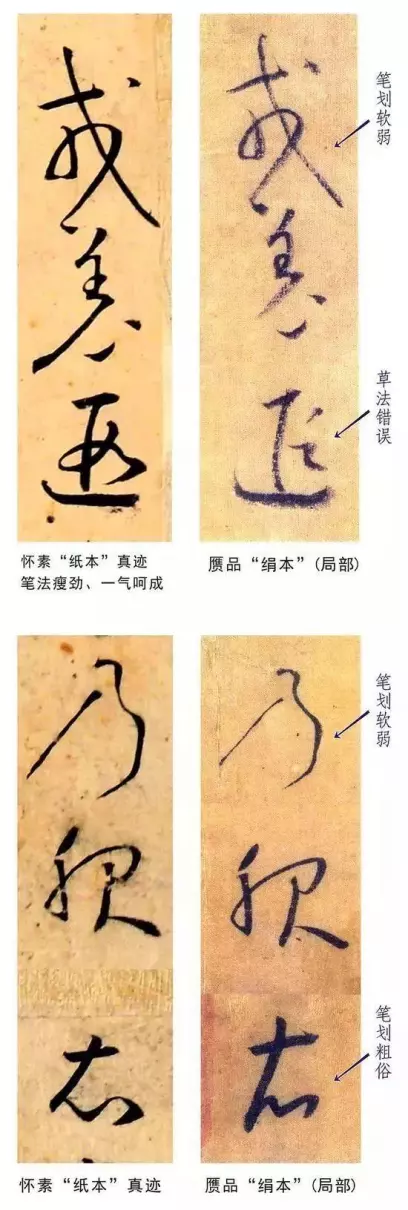 戎羌遐
戎羌遐
笔划软弱
草法错误
怀素“纸本”真迹
笔法瘦劲、一气呵成
赝品“绢本”(局部)
乃服衣
乃服衣
笔划软弱
笔划粗俗
怀素“纸本”真迹
赝品“绢本”(局部)